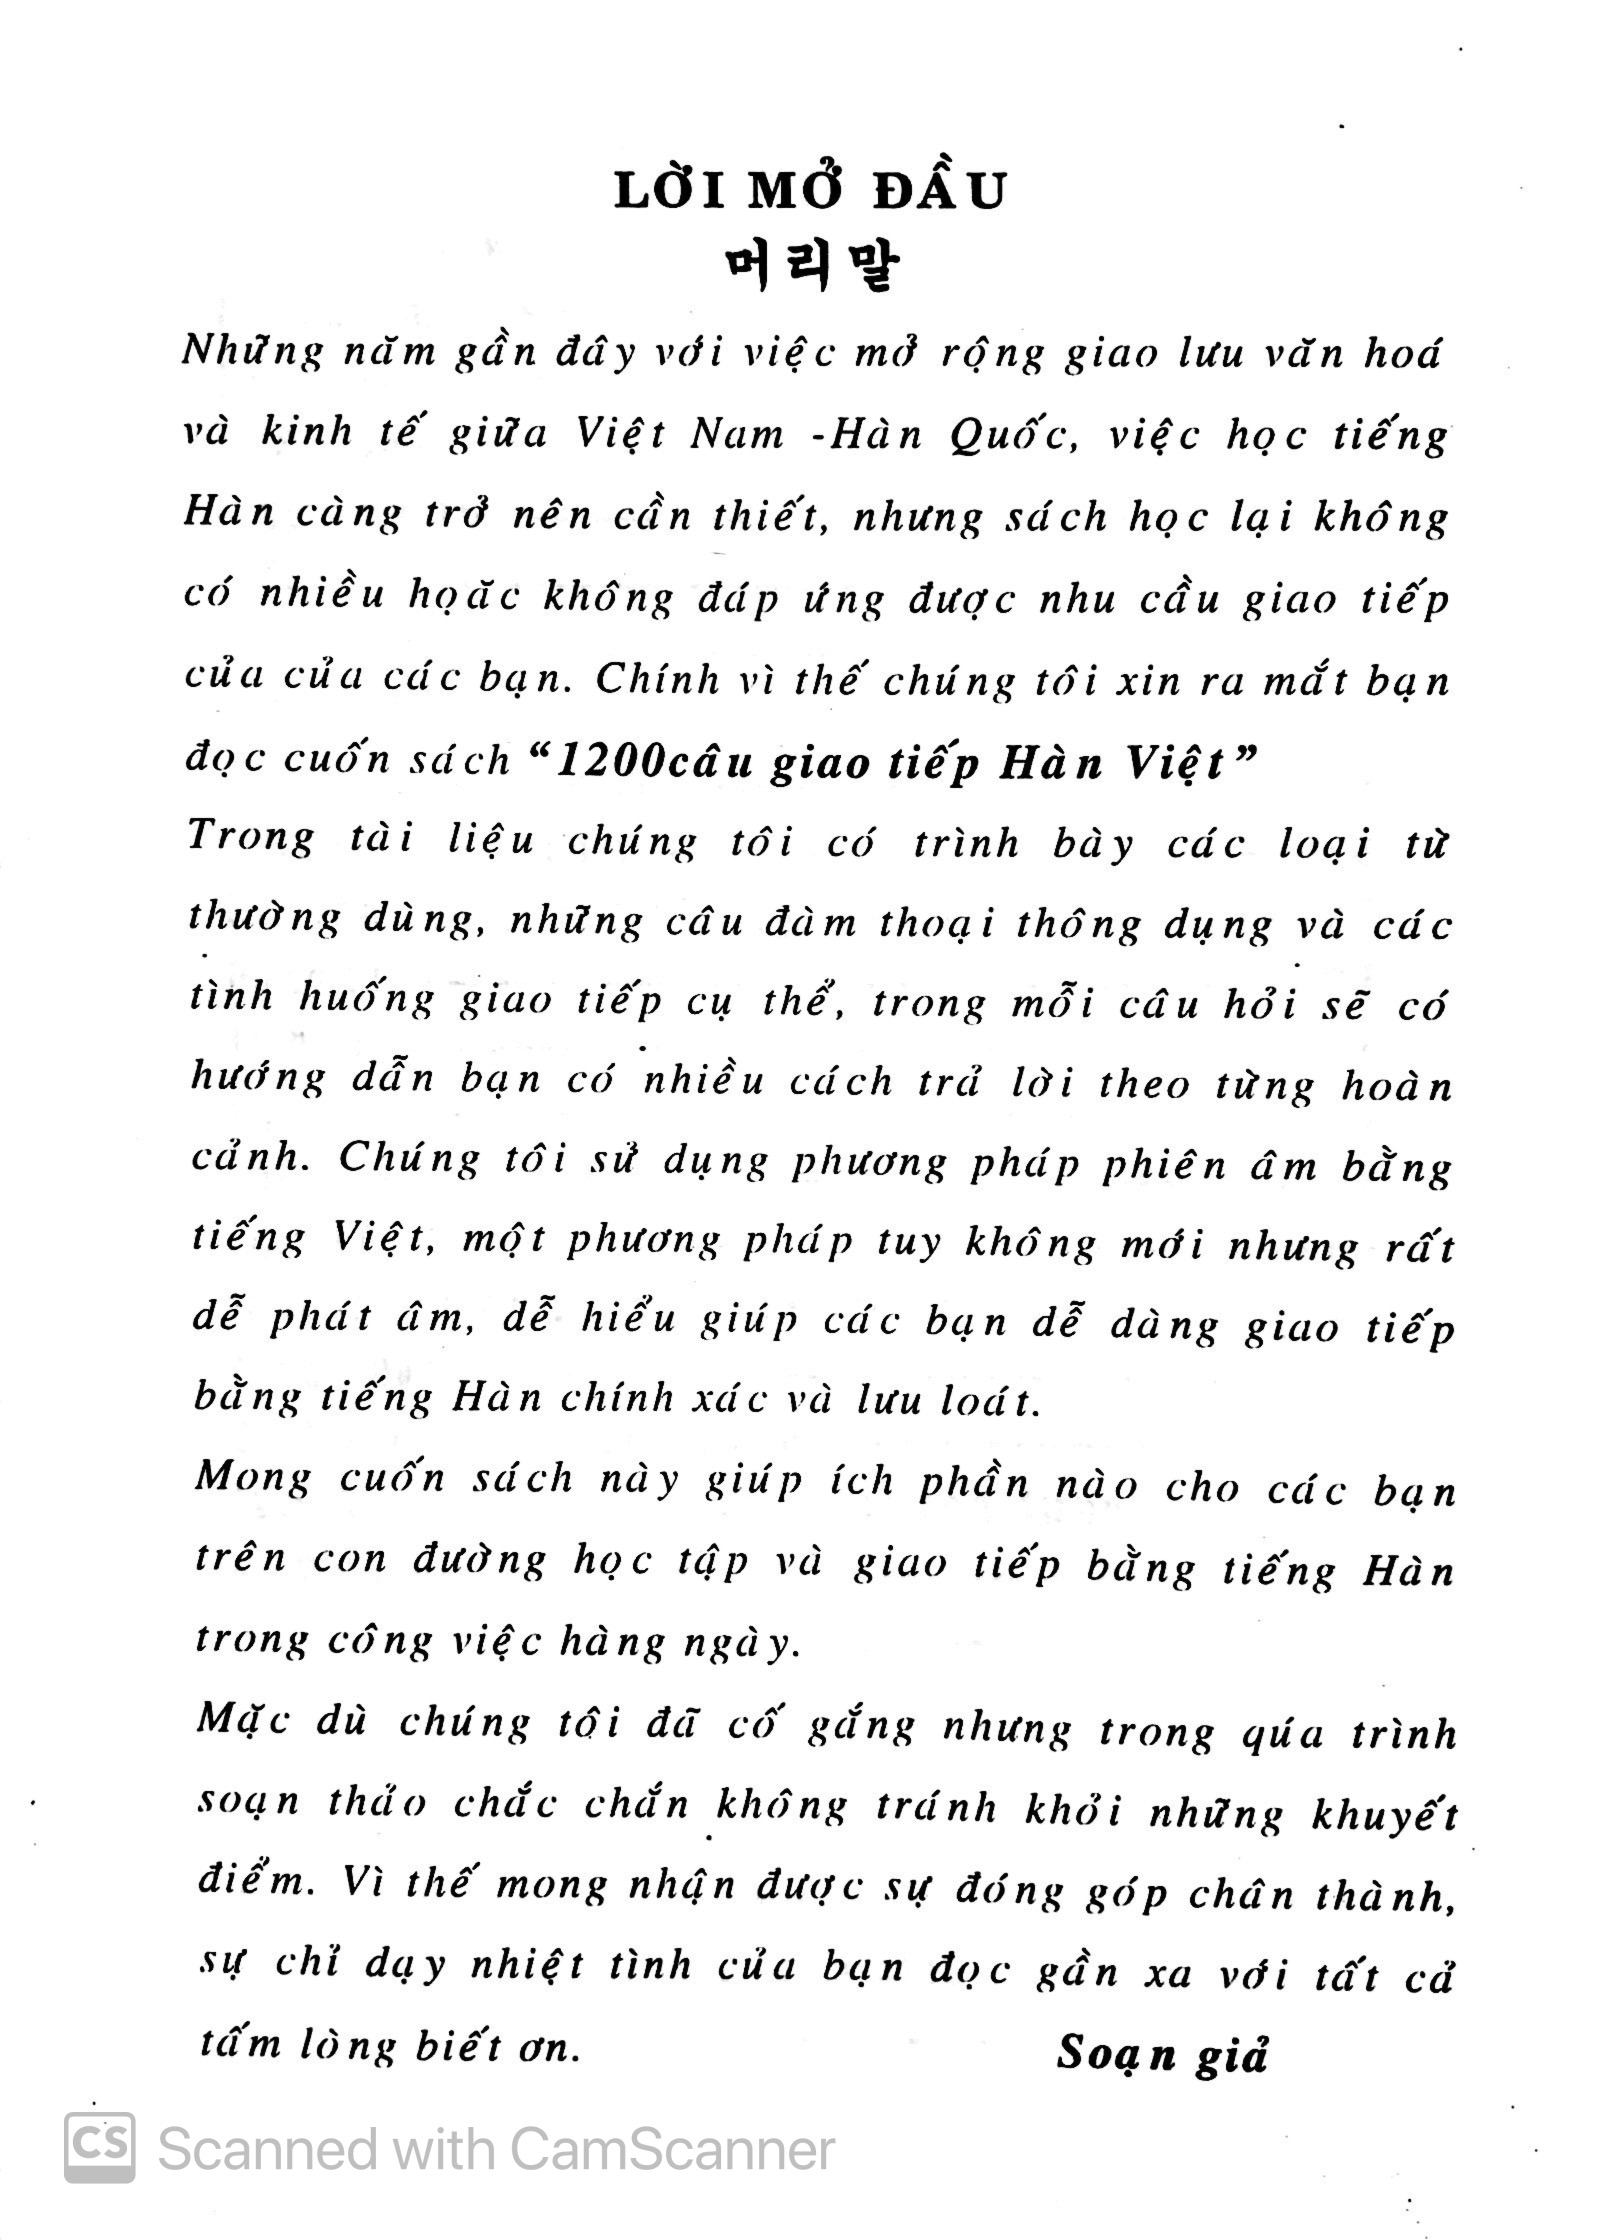 LỜI MỞ ĐẦU
머리말
Những năm gần đây với việc mở rộng giao lưu văn hoá
và kinh tế giữa Việt Nam -Hàn Quốc, việc học tiếng
Hàn càng trở nên cần thiết, nhưng sách học lại không
có nhiều họăc không đáp ứng được nhu cầu giao tiếp
của của các bạn. Chính vì thế chúng tôi xin ra mắt bạn
đọc cuốn sách “1200câu giao tiếp Hàn Việt”
Trong tài liệu chúng tôi có trình bày các loại từ
thường dùng, những câu đàm thoại thông dụng và các
tình huống giao tiếp cụ thể, trong mỗi câu hỏi sẽ có
hướng dẫn bạn có nhiều cách trả lời theo từng hoàn
cảnh. Chúng tôi sử dụng phương pháp phiên âm bằng
tiếng Việt, một phương pháp tuy không mới nhưng rất
dễ phát âm, dễ hiểu giúp các bạn dễ dàng giao tiếp
bằng tiếng Hàn chính xác và lưu loát.
Mong cuốn sách này giúp ích phần nào cho các bạn
trên con đường học tập và giao tiếp bằng tiếng Hàn
trong công việc hàng ngày.
Mặc dù chúng tôi đã cố gắng nhưng trong qúa trình
soạn thảo chắc chắn không tránh khỏi những khuyết
điểm. Vì thế mong nhận được sự đóng góp chân thành,
sự chỉ dạy nhiệt tình của bạn đọc gần xa với tất cả
tấm lòng biết ơn. Soạn giả
CS Scanned with CamScanner